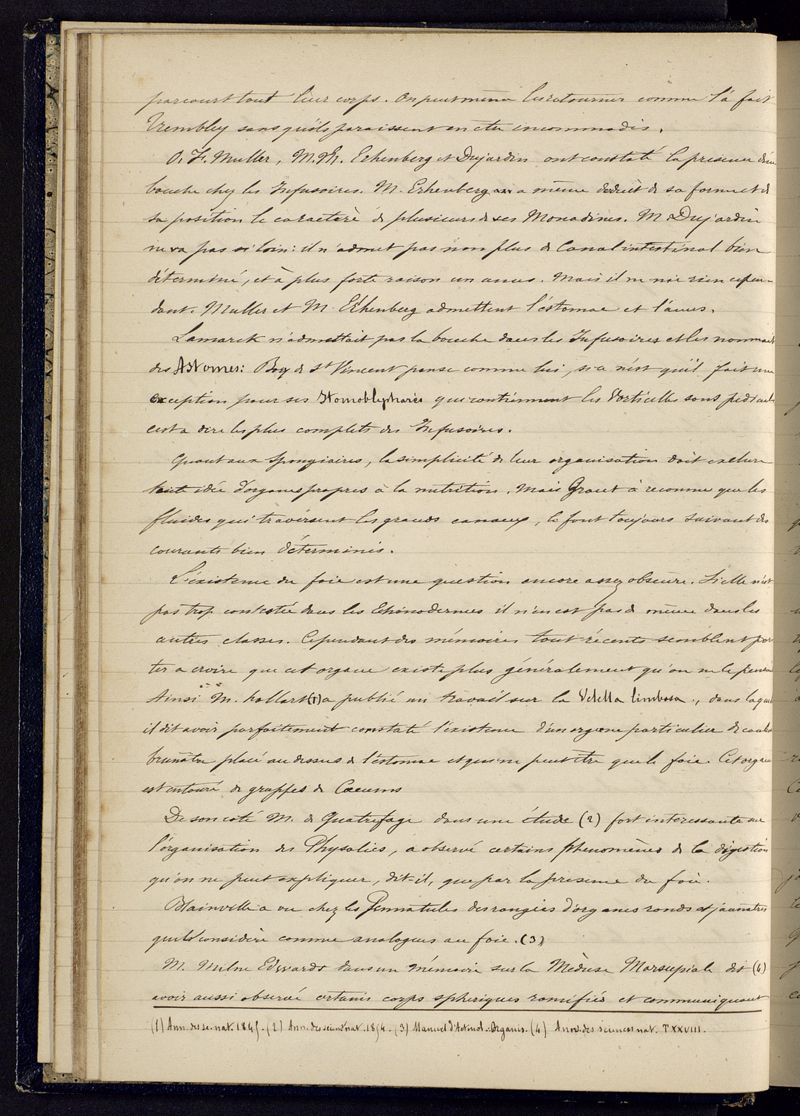 parcourt tout leur corps. On peut même les retourner comme l'a fait
Trembley sans qu'ils paraissent en être incommodés.
O. F. Muller, M.M. Erhenberg et Dujardin ont constaté la présence d'une
bouche chez les Infusoires. M. Erhenberg a même déduit de sa forme et de
sa position le caractère de plusieurs de ses Monadines. M Dujardin
ne va pas si loin: il n'admet pas non plus de Canal intestinal bien
déterminé, et à plus forte raison un anus. Mais il ne nie rien cepen-
dant. Muller et M. Erhenberg admettent l'estomac et l'anus.
Lamarck n'admettait pas la bouche dans les Infusoires et les nommait
des Astomes: Bory de St Vincent pense comme lui, si ce n'est qu'il fait une
exception pour ses Stomoblépharés qui contiennent les Vorticelles sans pédicule
c'est a dire les plus complets des Infusoires.
Quant aux Spongiaires, la simplicité de leur organisation doit exclure
toute idée d'organes propres à la nutrition. Mais Grant à reconnu que les
fluides qui traversent les grands canaux, le font toujours suivant des
courants bien déterminés.
L'existence du foie est une question encore assez obscure. Si elle n'est
pas trop contestée dans les Echinodermes il n'en est pas de même dans les
autres classes. Cependant des mémoires tout récents semblent por-
ter a croire que cet organe existe plus généralement qu'on ne le pense
Ainsi M. Hollard (1) a publié un travail sur la Velella limbosa, dans laquel
il dit avoir parfaitement constaté l'existence d'un organe particulier de couleur
brunâtre placé au dessus de l'estomac et qui ne peut être que le foie. Cet organe
est entouré de grappes de Coecums
De son coté M. de Quatrefage dans une étude (2) fort intéressante sur
l'organisation des Physalies, a observé certains phenomènes de la digestion
qu'on ne peut expliquer, dit-il, que par la présence du foie.
Blainville a vu chez les Pennatules des rangées d'organes ronds et jaunatres
qu'il considère comme analogues au foie. (3)
M. Milne Edwards dans un mémoire sur la Méduse Marsupiale dit (4)
avoir aussi observé certains corps spheriques ramifiés et communiquant
(1) Ann. des sc. nat. 1845. (2) Ann. des scienc. nat. 1854. (3) Manuel d'Actinol. Organis. (4) Ann. des sciences nat. T XXVIII.